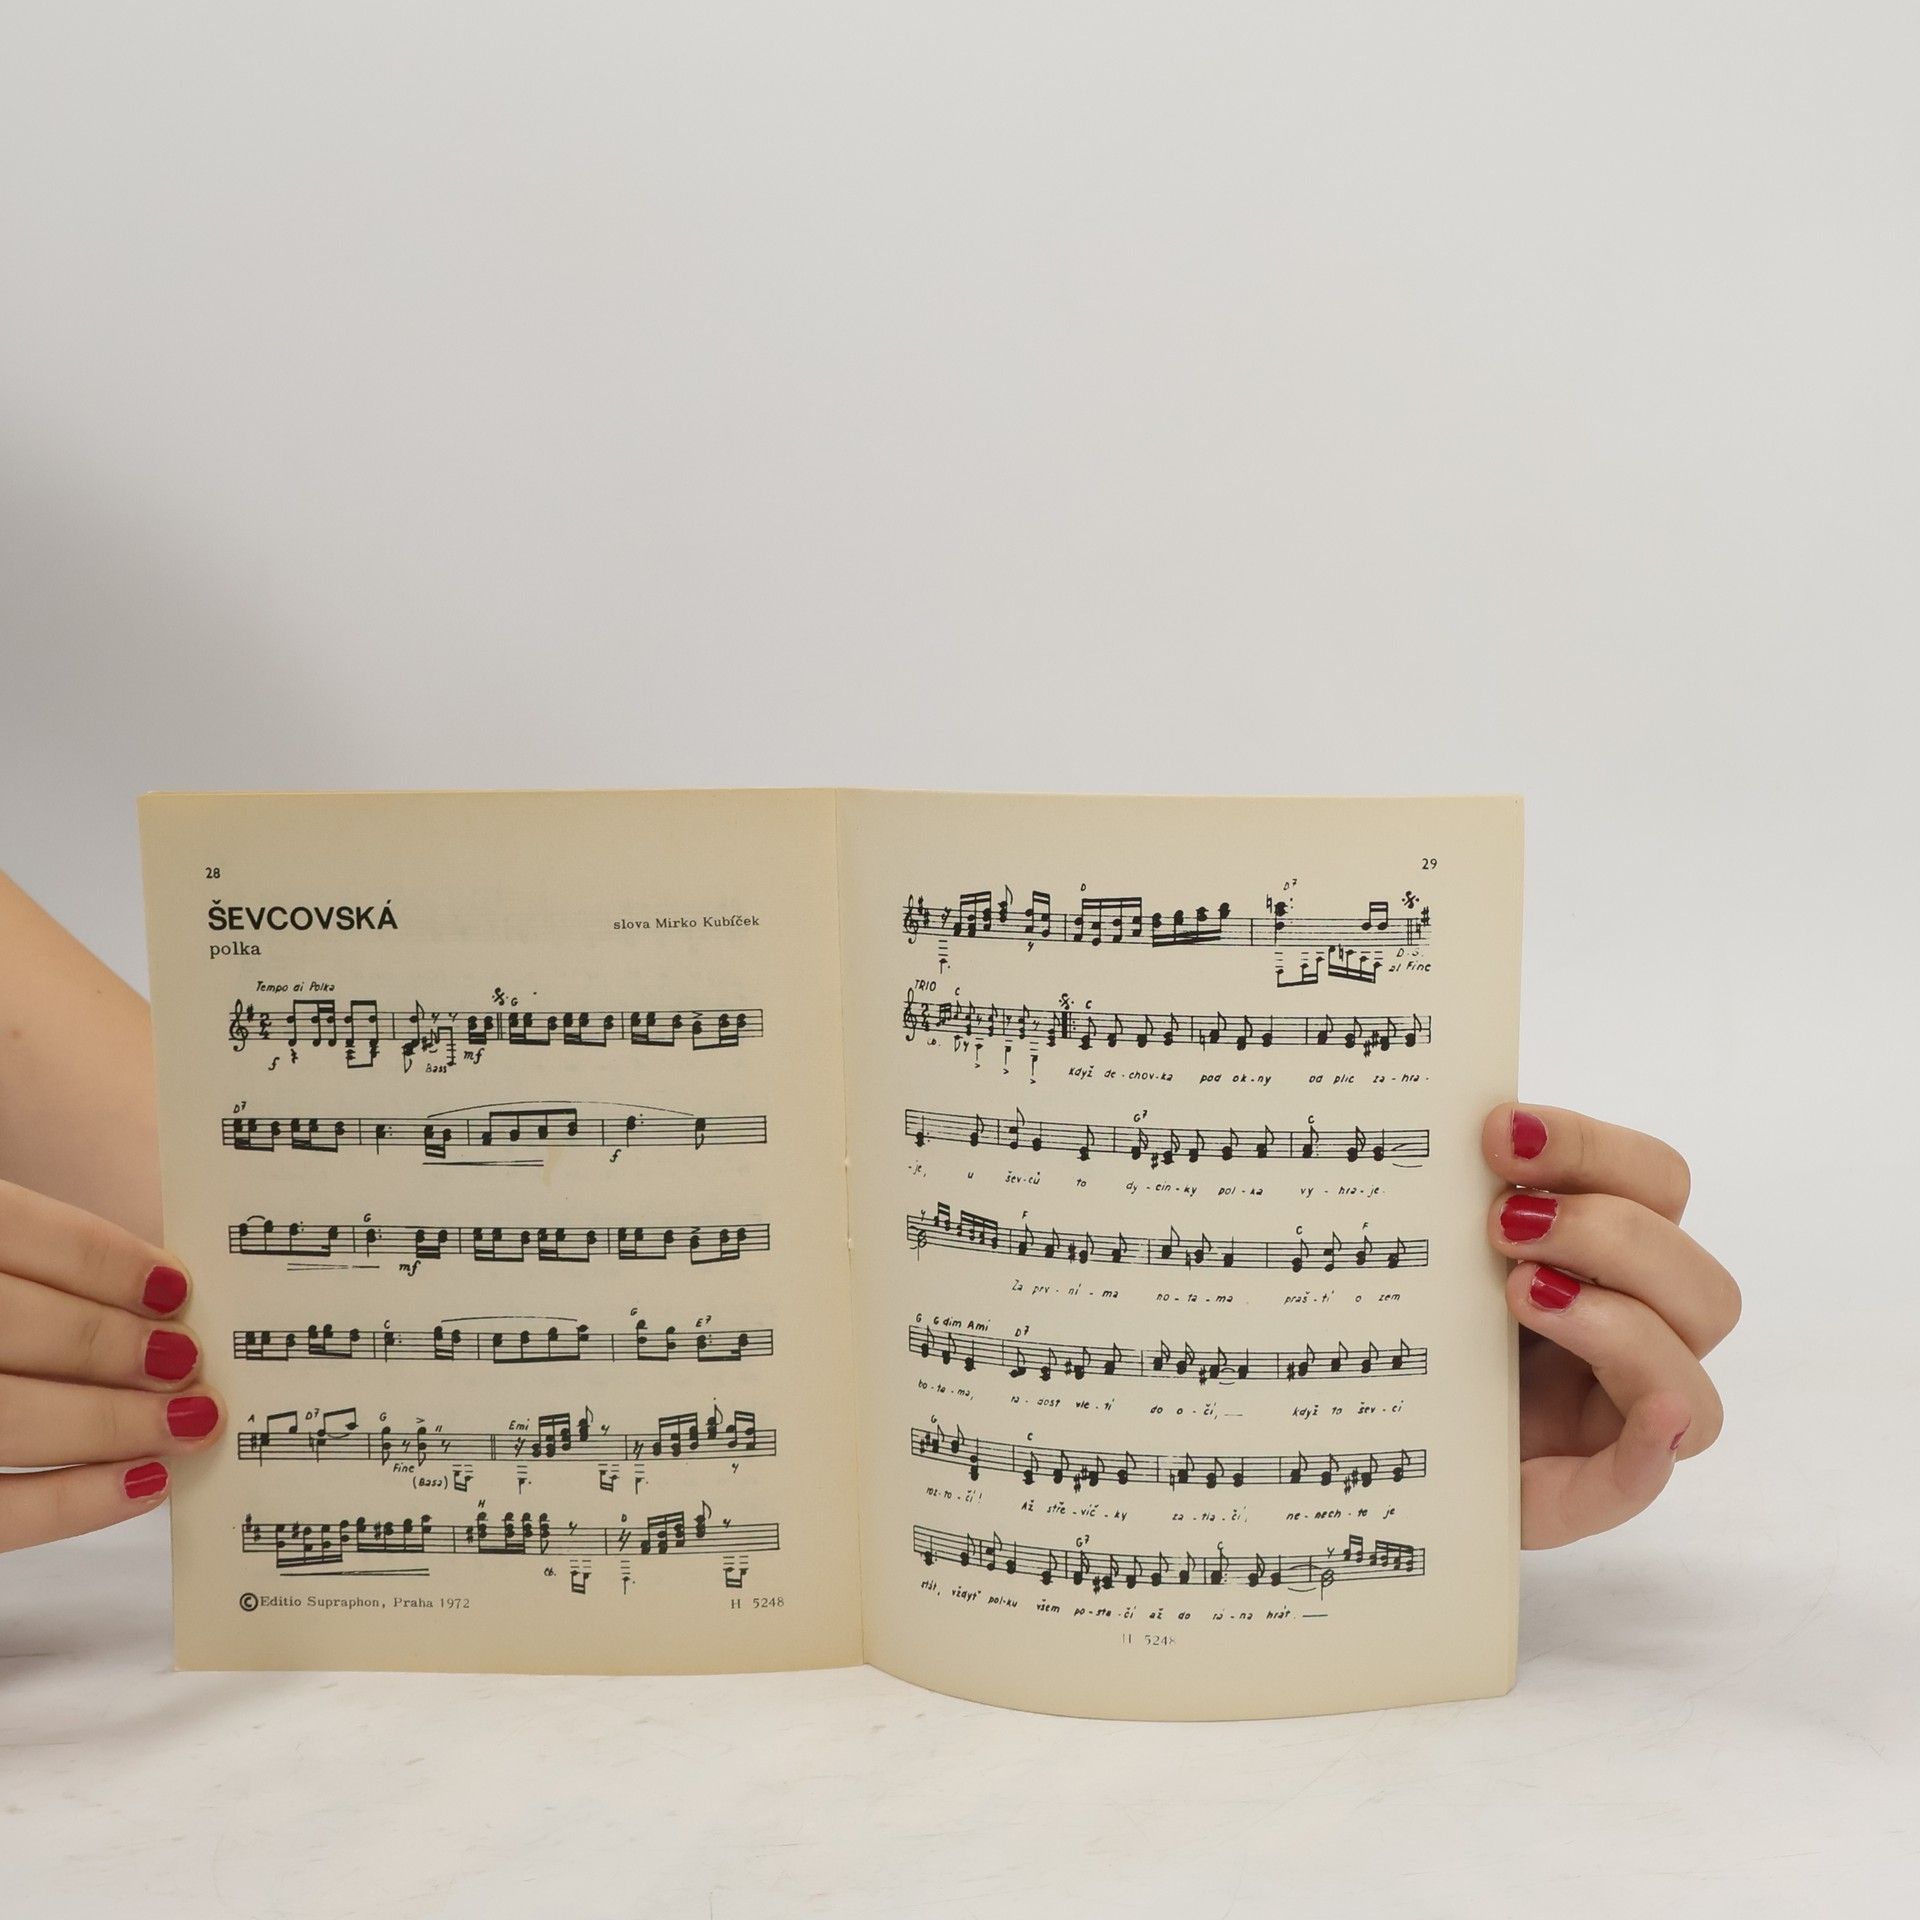 28
ŠEVCOVSKÁ
slova Mirko Kubíček
polka
Tempo di Polka
G
f
Bass
mf
D7
f
G
mf
C G E7
A D7 G Emi
Fine
(Bass)
H D
cb.
©Editio Supraphon, Praha 1972
H 5248
29
D D7
D.S.
al Fine
TRIO
C C
Když de-chov-ka pod ok-ny od plic za-hra-
G7 C
-je, u šev-ců to dy-cin-ky pol-ka vy-hra-je.
F C F
Za prv-ní-ma no-ta-ma praš-tí o zem
G G dim Ami D7
bo-ta-ma, ra-dost vle-tí do o-čí, — když to šev-ci
G C
roz-to-čí! Až stře-víč-ky za-tla-čí, ne-nech-te je
G7 C
stát, vždyť pol-ku všem po-sta-čí až do rá-na hrát. —
H 5248